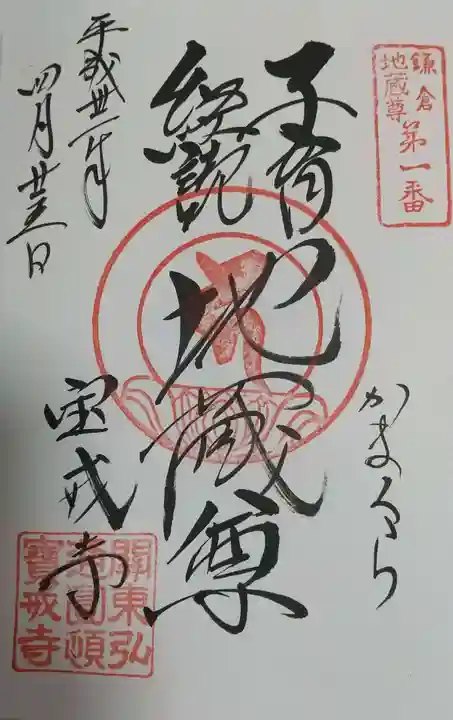 鎌倉
地蔵尊
第一番
かまくら
子育
経読
地蔵尊
宝戒寺
平成卅一年
四月廿五日
關東弘
通圓頓
寶戒寺